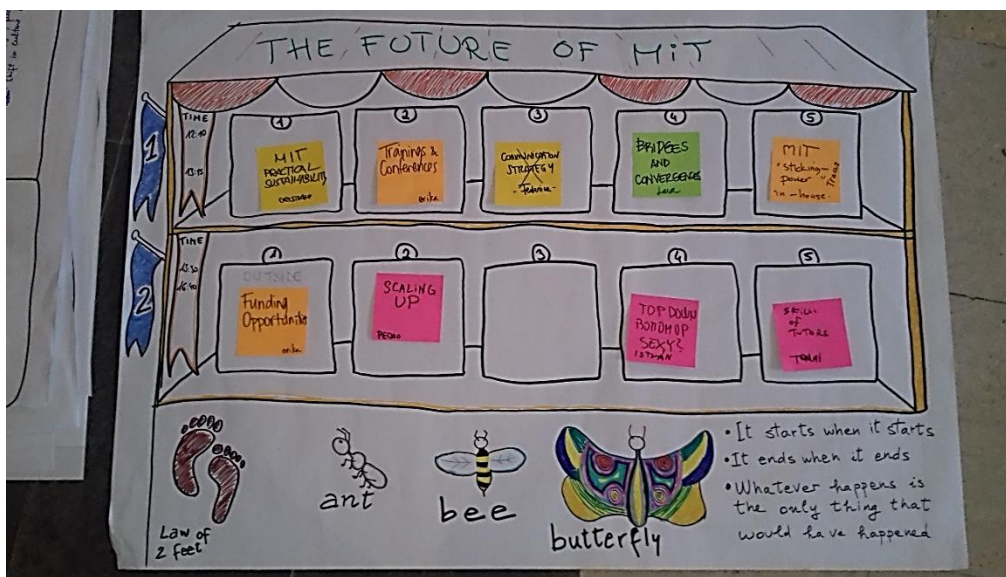 THE FUTURE OF MiT
1
TIME
12:10
13:15
1
MIT
PRACTICAL
SUSTAINABILITY
2
Tranings &
Conferences
erika
3
COMMUNICATION
STRATEGY
- Federica -
4
BRIDGES
AND
CONVERGENCES
Luca
5
MIT
"sticking-
power"
in-house
2
TIME
15:30
16:40
1
OUTSIDE
Funding
Opportunities
erika
2
SCALING
UP
PEDRO
3
4
TOP DOWN
BOTTOM UP
SEXY?
ISTVAN
5
SKILLS
of
TUTORS
Law of
2 feet
ant
bee
butterfly
• It starts when it starts
• It ends when it ends
• Whatever happens is
the only thing that
would have happened